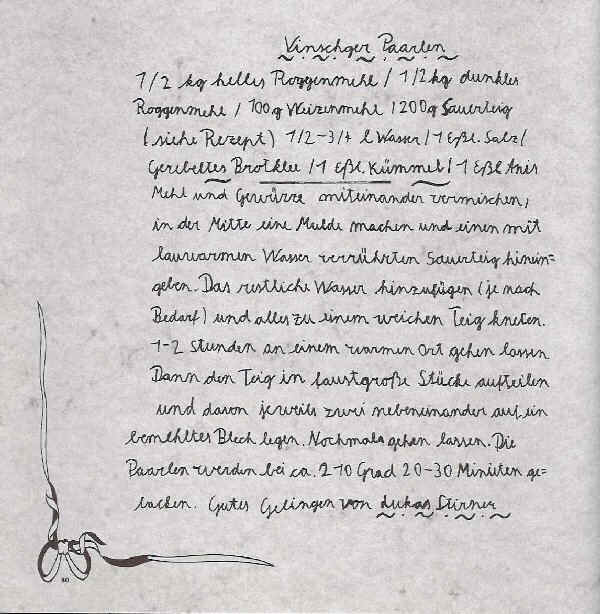 Vinschger Paarlen
1/2 kg helles Roggenmehl / 1/2 kg dunkles
Roggenmehl / 100g Weizenmehl / 200g Sauerteig
(siehe Rezept) 1/2-3/4 l Wasser / 1 Eßl. Salz /
Gerebeltes Brotklee / 1 Eßl. Kümmel / 1 Eßl Anis
Mehl und Gewürze miteinander vermischen,
in der Mitte eine Mulde machen und einen mit
lauwarmen Wasser verrührten Sauerteig hinein=
geben. Das restliche Wasser hinzufügen (je nach
Bedarf) und alles zu einem weichen Teig kneten.
1-2 Stunden an einem warmen Ort gehen lassen
Dann den Teig in faustgroße Stücke aufteilen
und davon jeweils zwei nebeneinander auf ein
bemehltes Blech legen. Nochmals gehen lassen. Die
Paarlen werden bei ca. 210 Grad 20-30 Minuten ge=
backen. Gutes Gelingen von Lukas Stirner
80